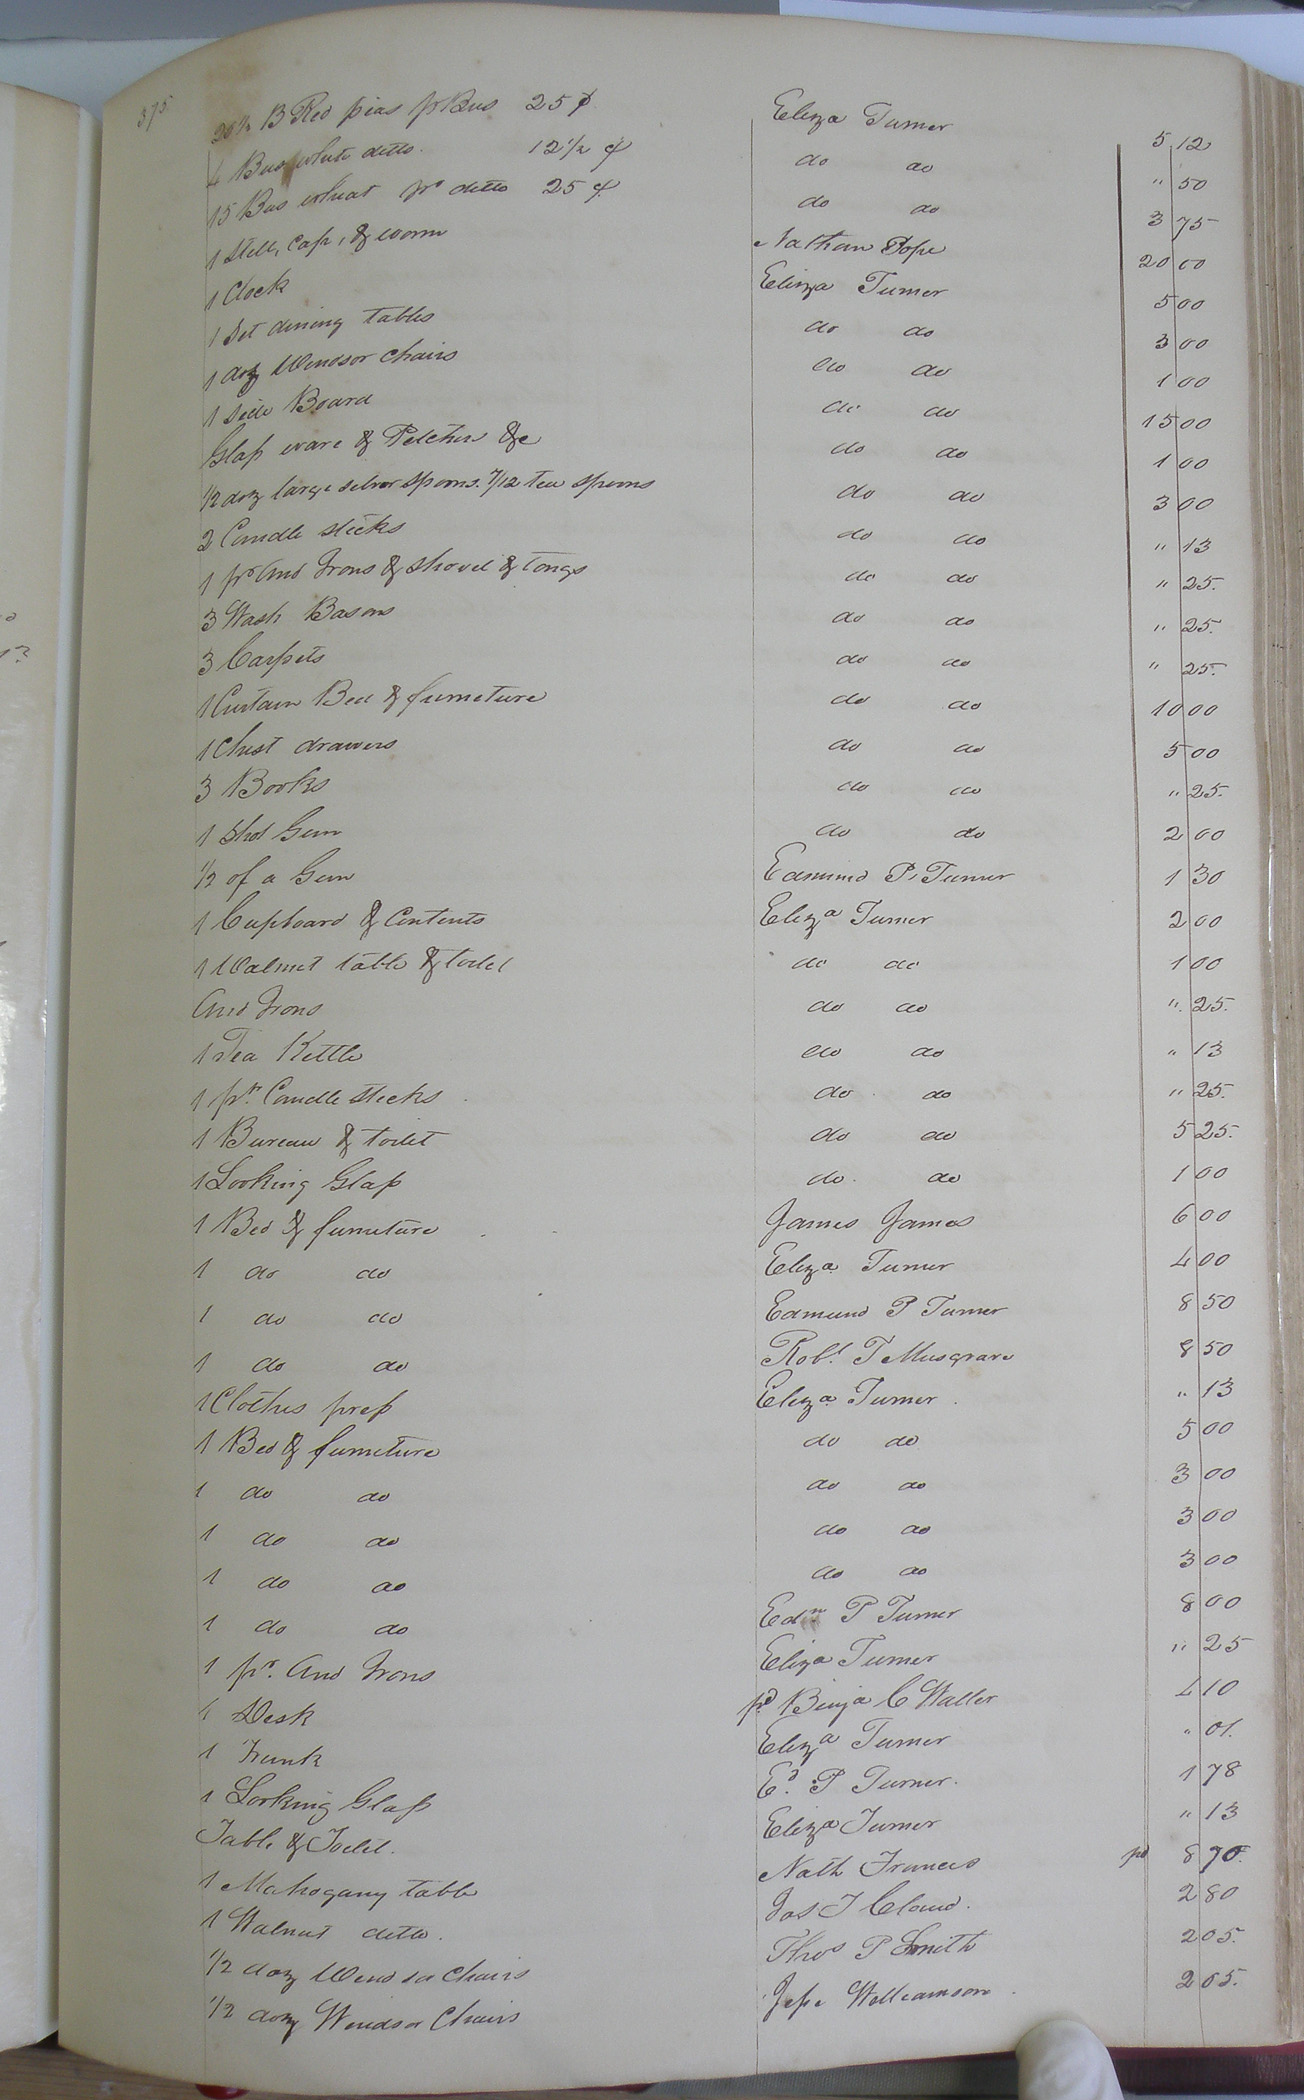 375
20½ B Red pias pr Bus 25 ¢ Eliza Turner 5 12
4 Bus white ditto. 12½ ¢ do do " 50
15 Bus wheat pr ditto 25 ¢ do do 3 75
1 Still, Cap, & worm Nathan Pope 20 00
1 Clock Eliza Turner 5 00
1 Set dining tables do do 3 00
1 doz Windsor Chairs do do 1 00
1 Side Board do do 15 00
Glass ware & Pitchers &c do do 1 00
½ doz large silver spoons. 7/12 tea spoons do do 3 00
2 Candle sticks do do " 13
1 pr And Irons & shovel & tongs do do " 25.
3 Wash Basons do do " 25.
3 Carpets do do " 25.
1 Curtain Bed & furneture do do 10 00
1 Chest drawers do do 5 00
3 Books do do " 25.
1 Shot Gun do do 2 00
½ of a Gun Edmund P. Turner 1 30
1 Cupboard & Contents Eliza Turner 2 00
1 Walnut table & toilet do do 1 00
And Irons do do " 25.
1 Tea Kettle do do " 13
1 pr. Candle sticks do do " 25.
1 Bureau & toilet do do 5 25.
1 Looking Glass do do 1 00
1 Bed & furneture James James 6 00
1 do do Eliza Turner 4 00
1 do do Edmund P Turner 8 50
1 do do Robt. T Musgrave 8 50
1 Clothes press Eliza Turner. " 13
1 Bed & furneture do do 5 00
1 do do do do 3 00
1 do do do do 3 00
1 do do do do 3 00
1 do do Edm P Turner 8 00
1 pr. And Irons Eliza Turner " 25
1 Desk pd Binja C Waller 4 10
1 Trunk Eliza Turner " 01.
1 Looking Glass Ed. P Turner. 1 78
Table & Toilet. Eliza Turner " 13
1 Mahogany table Nath Frances pd 8 70.
1 Walnut ditto. Jas T Cloud. 2 80
½ doz Windsor Chairs Thos P Smith 2 05.
½ doz Windsor Chairs Jesse Williamson 2 05.